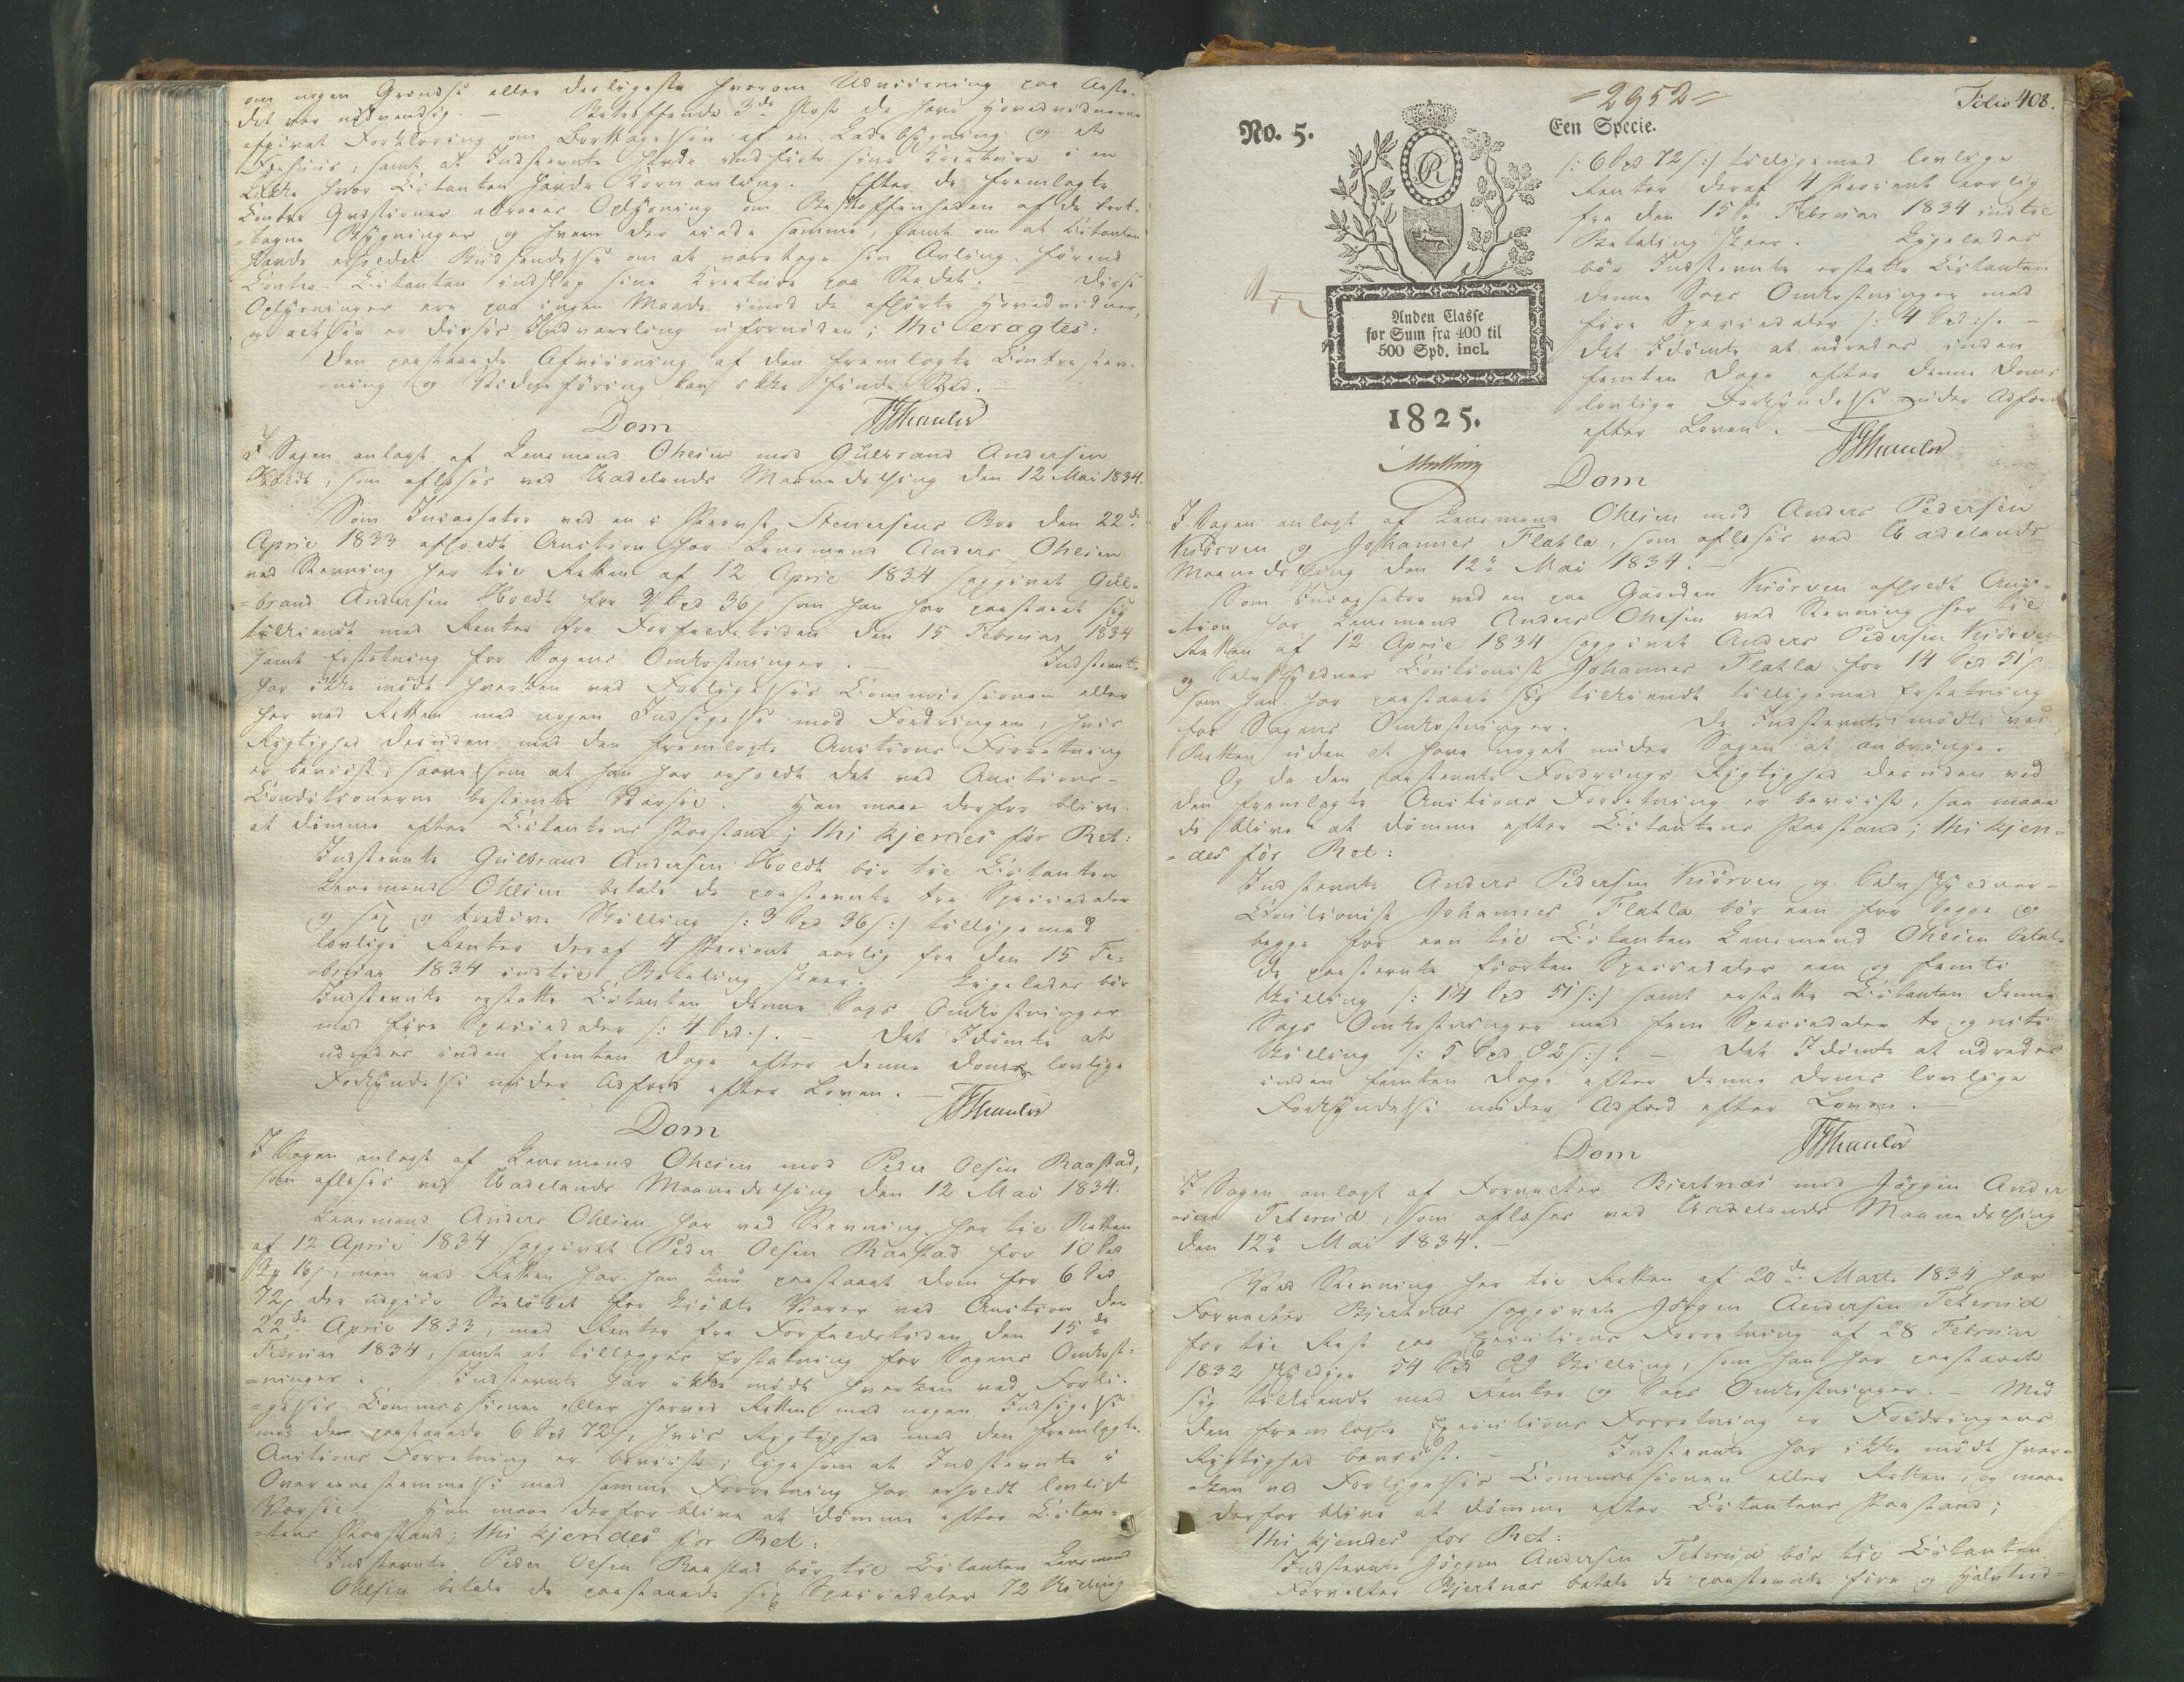 om nogen Grændse eller desligeste hvorom Udviisning paa Aaste-
det var nødvendig. — Betræffende 3de Post da have Hovedvidnerne
afgivet Forklaring om Borttagelsen af en Ladebygning og et
Fæhuus, samt at Indstevnte havde indført sine Kreature i en
Løkke hvor Citanten havde Kornavling. Efter de fremlagte
Contra Qvæstioner attraaes Oplysning om Beskaffenheden af de bort-
tagne Bygninger og hvem der eiede samme, samt om at Citanten
havde erholdt Budsendelse om at varetage sin Avling, førend
Contra-Citanten indslap sine Kreature paa Stedet. — Disse
Oplysninger ere paa ingen Maade imod de afhørte Hovedvidner,
og altsaa er disses Indvarsling ufornøden; thi eragtes:
Den paastaaede Afviisning af den fremlagte Contrastev-
ning og Vidneføring kan ikke finde Sted.
Dom
I Sagen anlagt af Lensmand Ohlsen mod Gulbrand Andersen
Hvedt, som aflæses ved Hadelands Maanedsthing den 12 Mai 1834.
Som Incassator ved en i Provst Stenersens Boe den 22de
April 1833 afholdt Auction har Lensmand Anders Ohlsen
ved Stevning her til Retten af 12 April 1834 saggivet Gul-
=brand Andersen Hvedt for 3 Spd 36 s som han har paastaaet sig
tilkiendt med Renter fra Forfaldstiden den 15 Februar 1834
samt Erstatning for Sagens Omkostninger. Indstevnte
har ikke mødt hverken ved Forligelses Commissionen eller
her ved Retten med nogen Indsigelse mod Fordringen, hvis
Rigtighed desuden med den fremlagte Auctions Forretning
er beviist, saavelsom at han har erholdt det ved Auctions-
Conditionerne bestemte Varsel. Han maae derfor blive
at dømme efter Citantens Paastand; thi kjendes for Ret:
Indstevnte Gulbrand Andersen Hvedt bør til Citanten
Lensmand Ohlsen betale de paastevnte tre Speciedaler
og sex og tredive Skilling /: 3 Spd 36 s :/ tilligemed
lovlige Renter deraf 4 Procent aarlig fra den 15 Fe-
=bruar 1834 indtil Betaling skeer. Ligeledes bør
Indstevnte erstatte Citanten denne Sags Omkostninger
med fire Speciedaler /: 4 Spd :/. — Det Idømte at
udredes inden femten Dage efter denne Doms lovlige
Forkyndelse under Adfærd efter Loven. —
Dom
I Sagen anlagt af Lensmand Ohlsen mod Peder Olsen Raastad,
som aflæses ved Hadelands Maanedsthing den 12 Mai 1834.
Lensmand Anders Ohlsen har ved Stevning her til Retten
af 12 April 1834 saggivet Peder Olsen Raastad for 10 Spd
16 s, men ved Retten har han kun paastaaet Dom for 6 Spd
72 s der udgiør Beløbet for kiøbte Varer ved Auction den
22de April 1833, med Renter fra Forfaldstiden den 15de
Februar 1834, samt at tillægges Erstatning for Sagens Omkost-
=ninger. Indstevnte har ikke mødt hverken ved Forli-
=gelses Commissionen eller herved Retten med nogen Indsigelse
mod de paastaaede 6 Spd 72 s, hvis Rigtighed med den fremlagte
Auctions Forretning er beviist, ligesom at Indstevnte i
Overeensstemmelse med samme Forretning har erholdt lovligt
Varsel. Han maae derfor blive at dømme efter Citan-
=tens Paastand; thi kjendes for Ret:
Indstevnte Peder Olsen Raastad bør til Citanten Lensmand
Ohlsen betale de paastaaede sex Speciedaler 72 Skilling
=2952= Folio 408.
No. 5. Een Specie.
R
Anden Classe
for Sum fra 400 til
500 Spd. incl.
1825.
/: 6 Spd 72 s :/ tilligemed lovlige
Renter deraf 4 Procent aarlig
fra den 15de Februar 1834 indtil
Betaling skeer. Ligeledes
bør Indstevnte erstatte Citanten
denne Sags Omkostninger med
fire Speciedaler /: 4 Spd :/. —
Det Idømte at udredes inden
femten Dage efter denne Doms
lovlige Forkyndelse under Adfærd
efter Loven. —
Dom
I Sagen anlagt af Lensmand Ohlsen mod Anders Pedersen
Kiørven og Johannes Flatla, som aflæses ved Hadelands
Maanedsthing den 12te Mai 1834. —
Som Incassator ved en paa Gaarden Kiørven afholdt Auc-
=tion har Lensmand Anders Ohlsen ved Stevning her til
Retten af 12 April 1834 saggivet Anders Pedersen Kiørven
og Selvskyldner Cautionist Johannes Flatla for 14 Spd 51 s
som han har paastaaet sig tilkiendt tilligemed Erstatning
for Sagens Omkostninger. De Indstevnte mødte ved
Retten uden at have noget under Sagen at anbringe.
Og da den paastevnte Fordrings Rigtighed desuden ved
den fremlagte Auctions Forretning er beviist, saa maae
de blive at dømme efter Citantens Paastand; thi kjen-
=des for Ret:
Indstevnte Anders Pedersen Kiørven og Selvskyldner-
Cautionist Johannes Flatla bør een for begge og
begge for een til Citanten Lensmand Ohlsen betale
de paastevnte fiorten Speciedaler een og femti
Skilling /: 14 Spd 51 s :/ samt erstatte Citanten denne
Sags Omkostninger med fem Speciedaler to og niti
Skilling /: 5 Spd 92 s :/. — Det Idømte at udredes
inden femten Dage efter denne Doms lovlige
Forkyndelse under Adfærd efter Loven. —
Dom
I Sagen anlagt af Forvalter Biertnæs mod Jørgen Ander
=sen Teterud, som aflæses ved Hadelands Maanedsthing
den 12te Mai 1834. —
Ved Stevning her til Retten af 20de Marts 1834 har
Forvalter Biertnæs saggivet Jørgen Andersen Teterud
for til Rest paa Executions Forretning af 28 Februar
1832 skyldige 54 Spd 99 Skilling, som han har paastaaet
sig tilkiendt med Renter og Sags Omkostninger. — Med
den fremlagte Executions Forretning er Fordringens
Rigtighed beviist. — Indstevnte har ikke mødt hver-
=ken ved Forligelses Commissionen eller Retten, og maae
derfor blive at dømme efter Citantens Paastand;
thi kjendes for Ret:
Indstevnte Jørgen Andersen Teterud bør til Citanten
Forvalter Bjertnæs betale de paastevnte fire og halvtred-